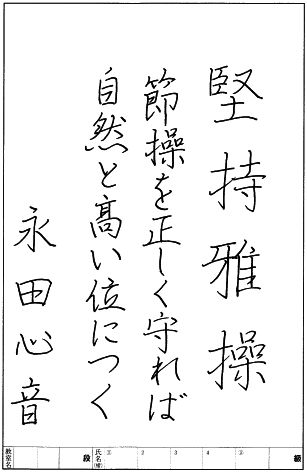 堅持雅操
節操を正しく守れば
自然と高い位につく
永田心音
級 ② 4 3 2 ① 氏名(号) 段 教室名